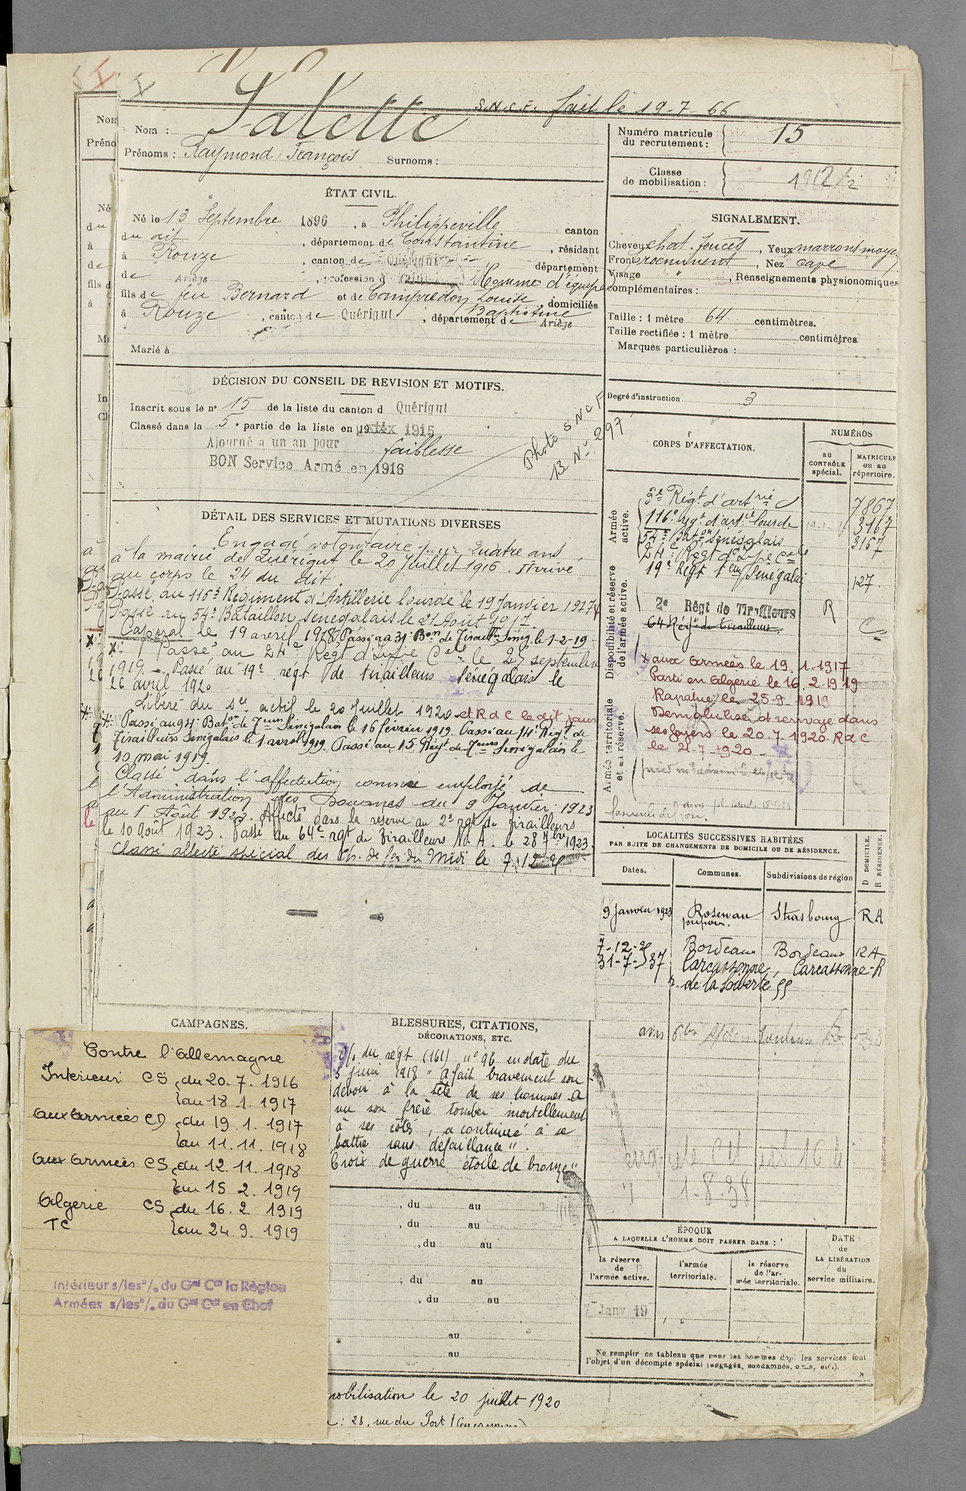 S.N.C.F. fait le 19-7-66
Nom :
Prénoms : Raymond François Surnoms :
Numéro matricule du recrutement : 15
Classe de mobilisation : 1912/2
ÉTAT CIVIL.
Né le 13 Septembre 1896, à Philippeville canton
du dit, département de Constantine, résidant
à Rouze, canton de Quérigut, département
de Ariège, profession d Homme d'équipe
fils de feu Bernard et de Campredon Louise Baptistine, domiciliés
à Rouze, canton de Quérigut, département de Ariège
Marié à
SIGNALEMENT.
Cheveux chat. foncés, Yeux marrons moyen
Front proeminent, Nez cave
Visage " , Renseignements physionomiques
complémentaires :
Taille : 1 mètre 64 centimètres.
Taille rectifiée : 1 mètre centimètres
Marques particulières :
Degré d'instruction. 3
DÉCISION DU CONSEIL DE REVISION ET MOTIFS.
Inscrit sous le n° 15 de la liste du canton d Quérigut
Classé dans la 5e partie de la liste en 1915
Ajourné a un an pour faiblesse
BON Service Armé en 1916
Photo S N C F
B. N° 297
DÉTAIL DES SERVICES ET MUTATIONS DIVERSES
Engagé volontaire pour quatre ans
à la mairie de Quérigut le 20 Juillet 1916. Arrivé
au corps le 24 du dit.
Passé au 116e Régiment d'Artillerie lourde le 19 Janvier 1917
Passé au 54e Bataillon Sénégalais le 21 Août 1917
Caporal le 19 avril 1918. Passé au 31e Bon de Tiraill. Sénég. le 1-2-19
Passé au 24e Régt d'Infie Cale le 27 septembre
1919 - Passé au 19e régt de tirailleurs Sénégalais le
26 avril 1920
Libéré du Sce actif le 20 Juillet 1920 et R d C le dit jour
Passé au 94e Baton de Tirurs Sénégalais le 16 février 1919. Passé au 14e Régt de
Tirailleurs Sénégalais le 1 avril 1919. Passé au 15 Régt de Tirurs Sénégalais le
19 mai 1919.
Classé dans l'affectation comme employé de
l'Administration des Douanes du 9 Janvier 1923
au 1er Août 1923. Affecté dans la réserve au 2e rgt de Tirailleurs
le 10 août 1923. Passé au 64e rgt de Tirailleurs N.A. le 28 7bre 1923.
Classé affecté spécial des Ch. de fer du Midi le 7.12.25
CORPS D'AFFECTATION.
NUMÉROS
au CONTRÔLE spécial.
MATRICULE ou au répertoire.
Armée active.
2e Régt d'artie cl 7867
116e Régt d'artie lourde 3167
54e Baton Sénégalais 3157
24e Régt d'Infie Cale
19e Régt Tirurs Sénégalais 127
Disponibilité et réserve de l'armée active.
2e Régt de Tirailleurs R
64 Régt de tirailleurs
Armée territoriale et sa réserve.
aux Armées le 19.1.1917
Parti en Algérie le 16.2.1919
Rapatrié le 25-9-1919
Démobilisé et renvoyé dans
ses foyers le 20.7.1920. R d C
le 21.7.1920
LOCALITÉS SUCCESSIVES HABITÉES
PAR SUITE DE CHANGEMENTS DE DOMICILE OU DE RÉSIDENCE.
Dates. Communes. Subdivisions de région D DOMICILE. R RÉSIDENCE.
9 Janvier 1923 Rosenau Strasbourg R A
7-12-25 Bordeaux Bordeaux
31-7-37 Carcassonne, Carcassonne R
r. de la Souverte 55
1-8-38
CAMPAGNES.
Contre l'Allemagne
Intérieur CS du 20.7.1916
au 18.1.1917
aux Armées CD du 19.1.1917
au 11.11.1918
aux Armées CS du 12.11.1918
au 15.2.1919
Algérie CS du 16.2.1919
TC au 24.9.1919
Intérieur s/les o/. du Gal Ct la Région
Armées s/les o/. du Gal Ct en Chef
BLESSURES, CITATIONS,
DÉCORATIONS, ETC.
O/. du régt (161) n° 96 en date du
5 juin 1918 "A fait bravement son
devoir à la tête de ses hommes. A
vu son frère tomber mortellement
à ses côtés, a continué à se
battre sans défaillance".
Croix de guerre étoile de bronze"
, du au
, du au
, du au
, du au
, du au
au
au
ÉPOQUE
A LAQUELLE L'HOMME DOIT PASSER DANS :
la réserve de l'armée active.
l'armée territoriale.
la réserve de l'armée territoriale.
DATE de LA LIBÉRATION du service militaire.
Janv 19
Ne remplir ce tableau que pour les hommes dont les services font
l'objet d'un décompte spécial (engagés, condamnés, o.m.s., etc.).
mobilisation le 20 juillet 1920
: 28, rue du Port (Carcassonne)